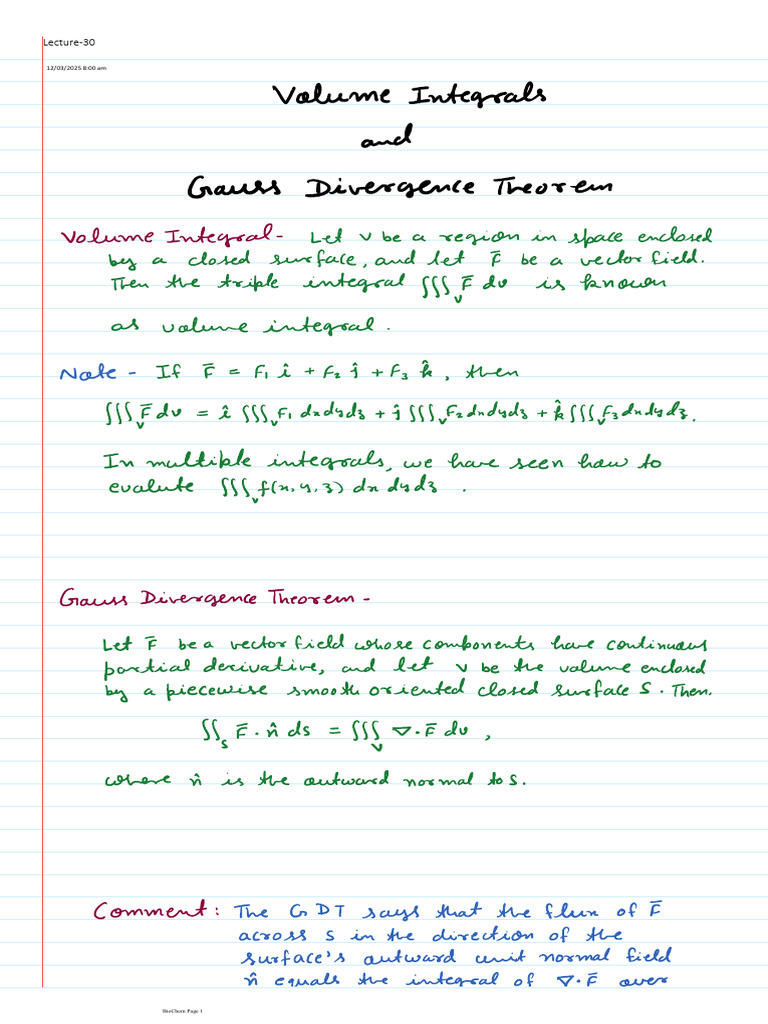 Lecture-30
12/03/2025 8:00 am
Volume Integrals
and
Gauss Divergence Theorem
Volume Integral - Let V be a region in space enclosed
by a closed surface, and let F̄ be a vector field.
Then the triple integral ∭_V F̄ dv is known
as volume integral.
Note - If F̄ = F₁ î + F₂ ĵ + F₃ k̂, then
∭_V F̄ dv = î ∭_V F₁ dx dy dz + ĵ ∭_V F₂ dx dy dz + k̂ ∭_V F₃ dx dy dz.
In multiple integrals, we have seen how to
evalute ∭_V f(x, y, z) dx dy dz .
Gauss Divergence Theorem -
Let F̄ be a vector field whose components have continuous
partial derivative, and let V be the volume enclosed
by a piecewise smooth oriented closed surface S. Then.
∬_S F̄ · n̂ ds = ∭_V ∇·F̄ dv ,
where n̂ is the outward normal to S.
Comment: The GDT says that the flux of F̄
across S in the direction of the
surface's outward unit normal field
n̂ equals the integral of ∇·F̄ over
BioChem Page 1